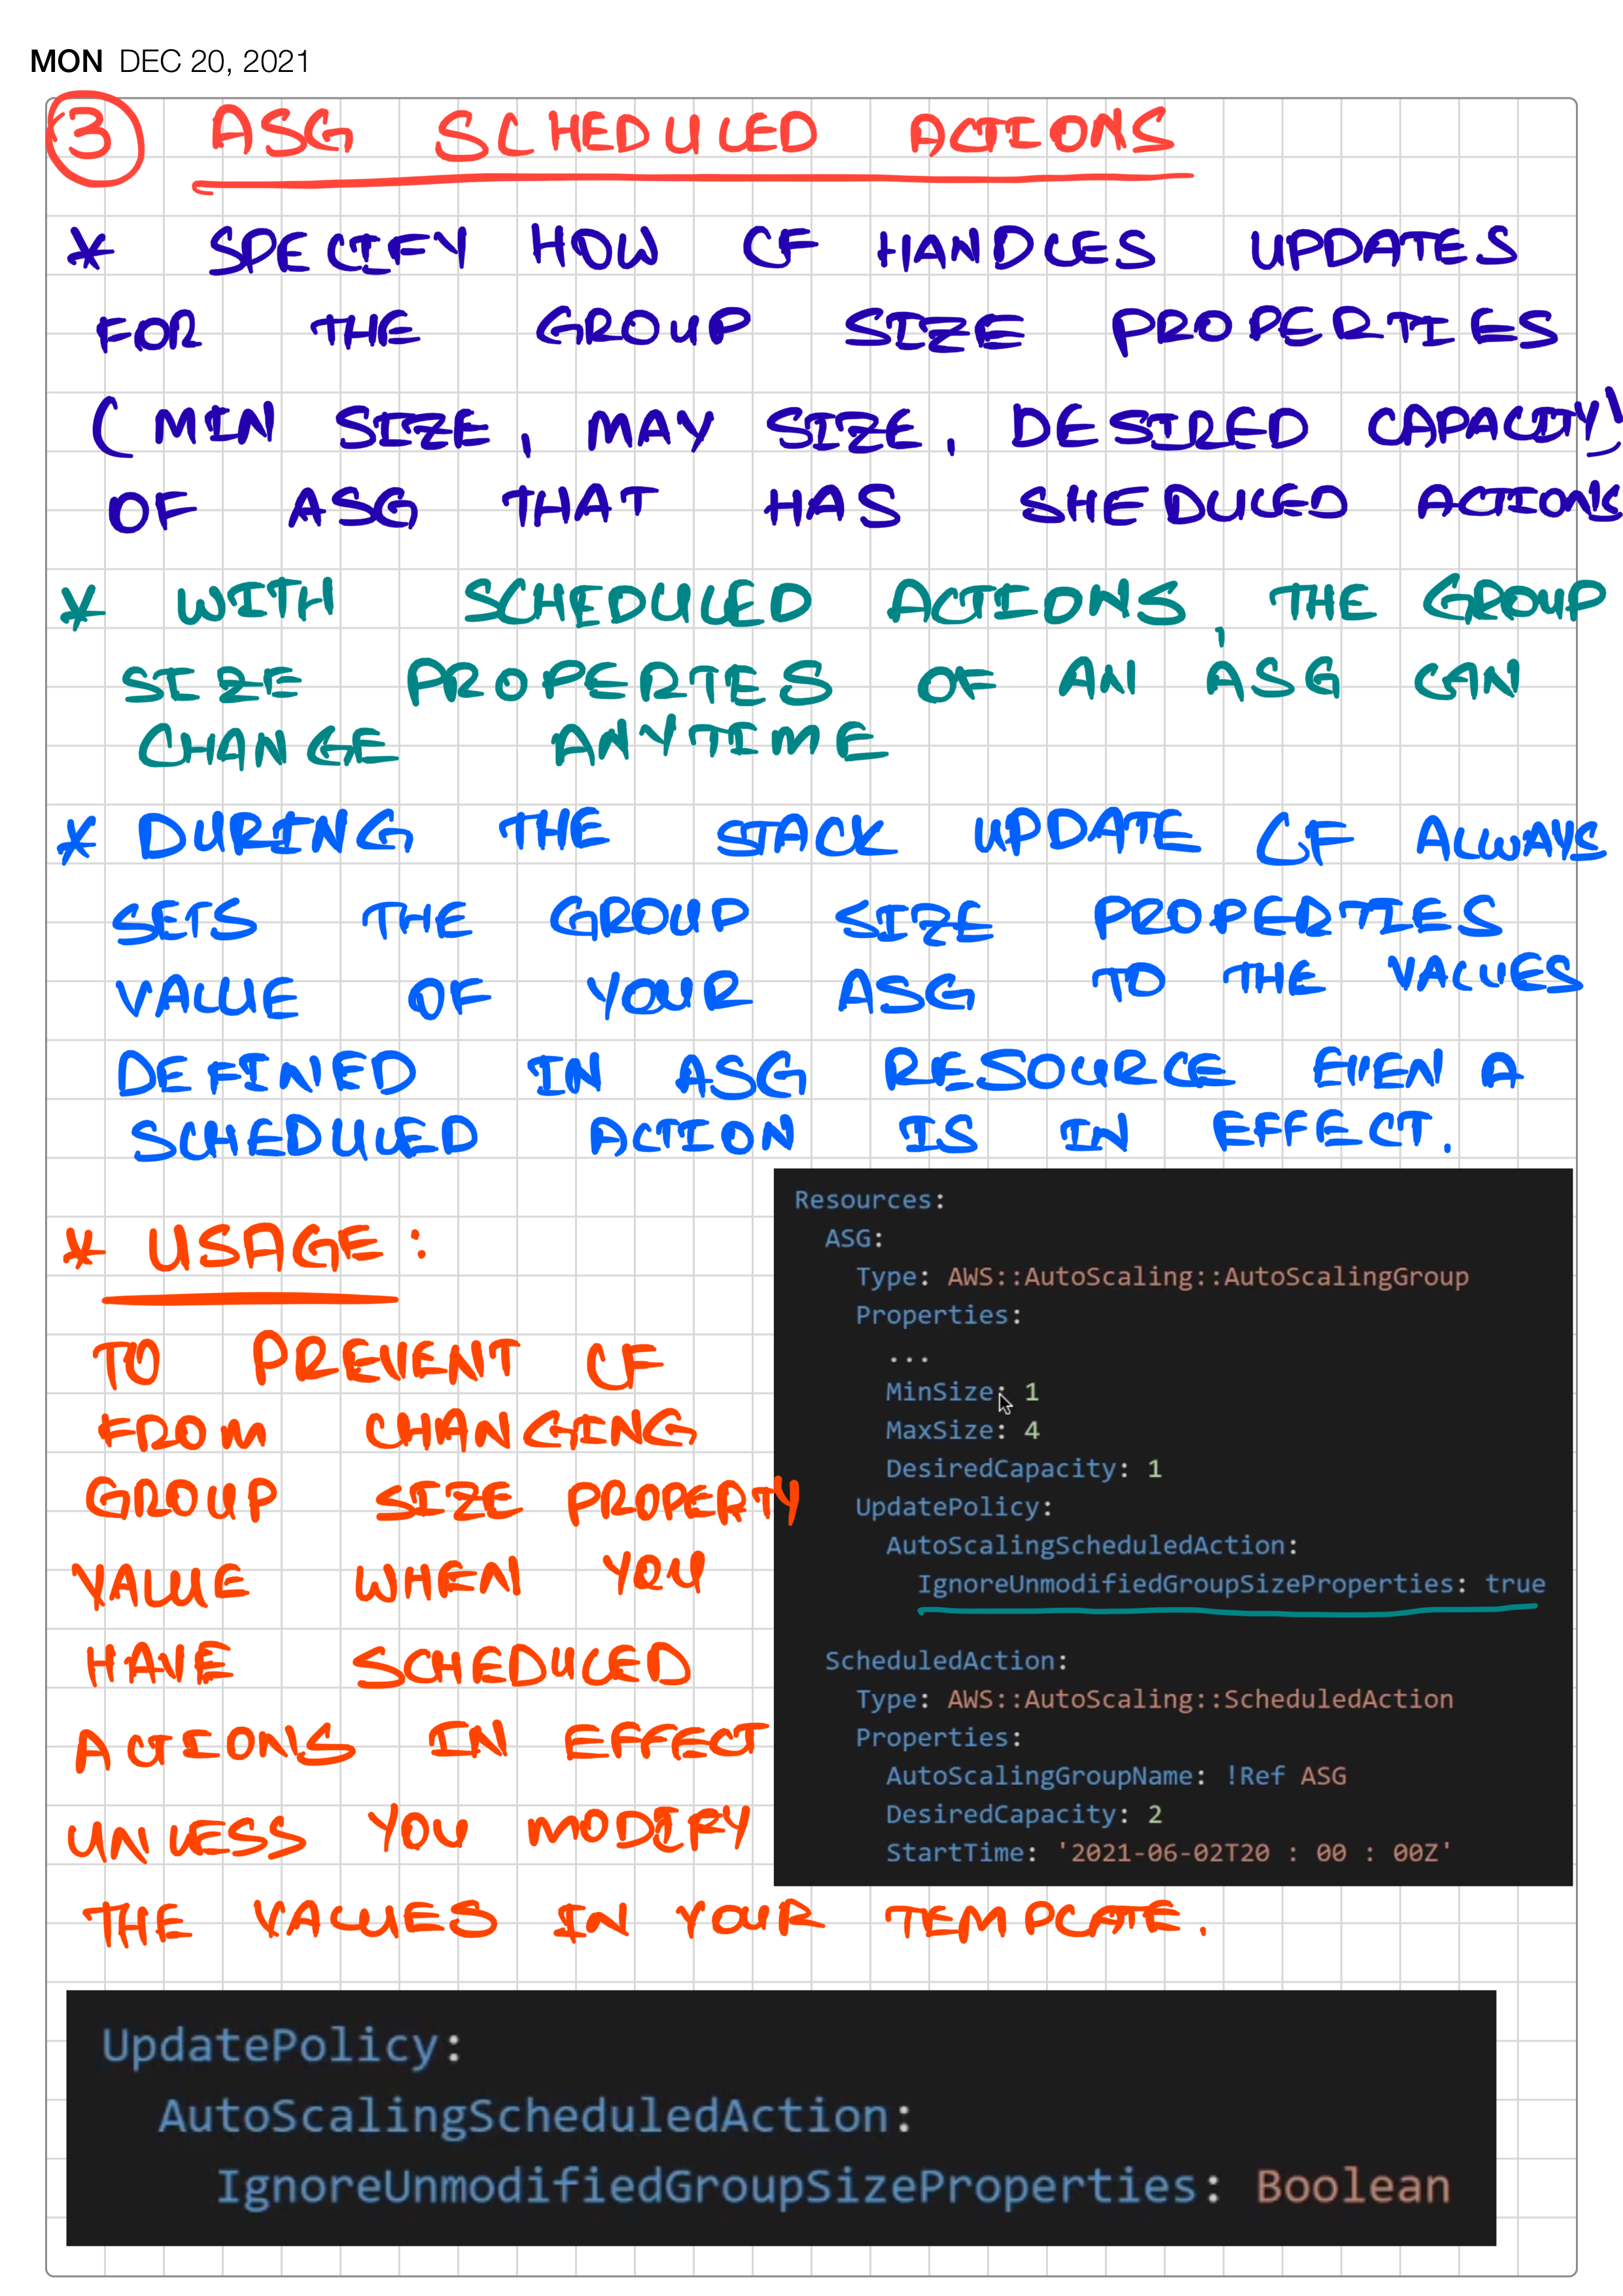 MON DEC 20, 2021
3 ASG SCHEDULED ACTIONS
* SPECIFY HOW CF HANDLES UPDATES
FOR THE GROUP SIZE PROPERTIES
( MIN SIZE, MAX SIZE, DESIRED CAPACITY)
OF ASG THAT HAS SHEDULED ACTIONS
* WITH SCHEDULED ACTIONS, THE GROUP
SIZE PROPERTIES OF AN ASG CAN
CHANGE ANYTIME
* DURING THE STACK UPDATE CF ALWAYS
SETS THE GROUP SIZE PROPERTIES
VALUE OF YOUR ASG TO THE VALUES
DEFINED IN ASG RESOURCE EVEN A
SCHEDULED ACTION IS IN EFFECT.
* USAGE:
TO PREVENT CF
FROM CHANGING
GROUP SIZE PROPERTY
VALUE WHEN YOU
HAVE SCHEDULED
ACTIONS IN EFFECT
UNLESS YOU MODIFY
THE VALUES IN YOUR TEMPLATE.
Resources:
ASG:
Type: AWS::AutoScaling::AutoScalingGroup
Properties:
...
MinSize: 1
MaxSize: 4
DesiredCapacity: 1
UpdatePolicy:
AutoScalingScheduledAction:
IgnoreUnmodifiedGroupSizeProperties: true
ScheduledAction:
Type: AWS::AutoScaling::ScheduledAction
Properties:
AutoScalingGroupName: !Ref ASG
DesiredCapacity: 2
StartTime: '2021-06-02T20 : 00 : 00Z'
UpdatePolicy:
AutoScalingScheduledAction:
IgnoreUnmodifiedGroupSizeProperties: Boolean